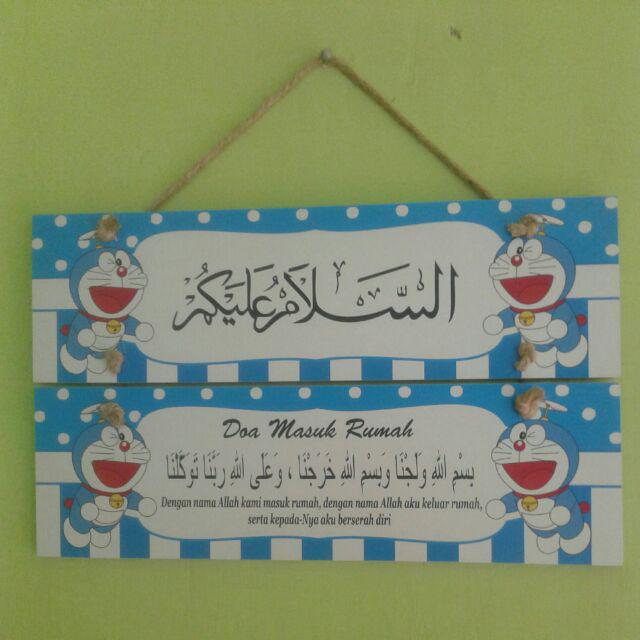 السَّلَامُ عَلَيْكُمْ
Doa Masuk Rumah
بِسْمِ اللهِ وَلَجْنَا وَبِسْمِ اللهِ خَرَجْنَا ، وَعَلَى اللهِ رَبِّنَا تَوَكَّلْنَا
Dengan nama Allah kami masuk rumah, dengan nama Allah aku keluar rumah,
serta kepada-Nya aku berserah diri